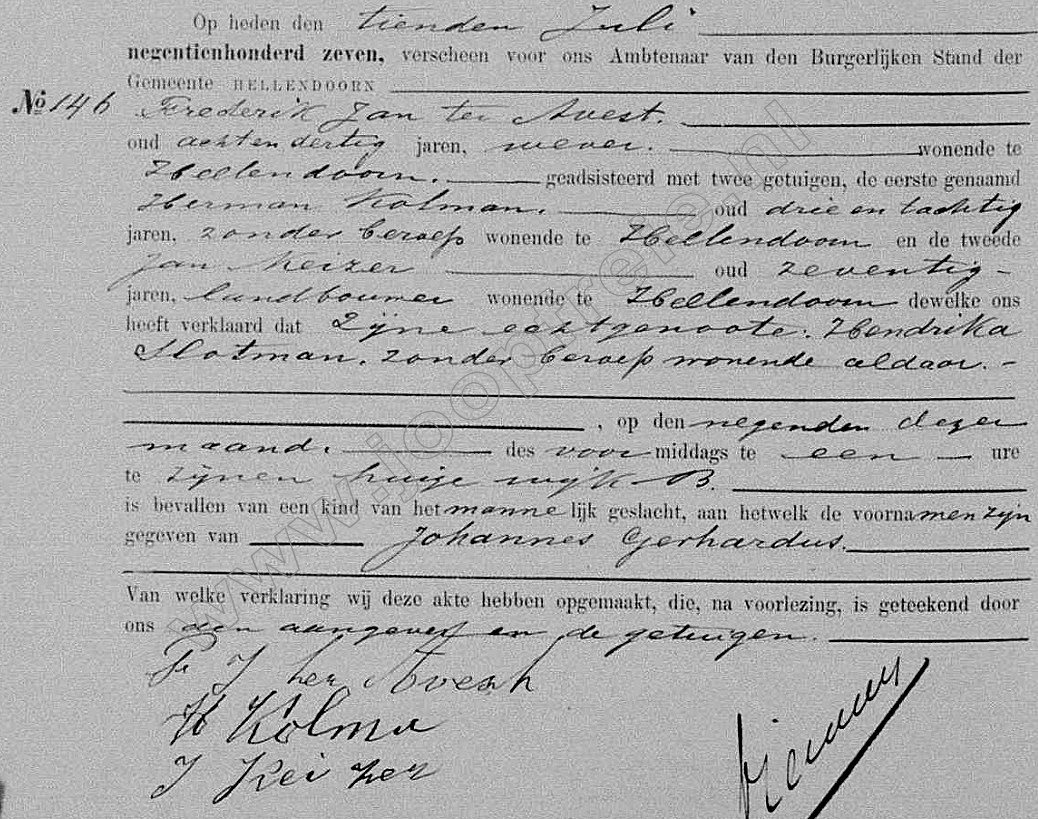 Op heden den tienden Juli
negentienhonderd zeven, verscheen voor ons Ambtenaar van den Burgerlijken Stand der
Gemeente HELLENDOORN
No 146 Frederik Jan ter Avest.
oud achtendertig jaren, wever. wonende te
Hellendoorn. geadsisteerd met twee getuigen, de eerste genaamd
Herman Kolman. oud drie en tachtig
jaren, zonder beroep wonende te Hellendoorn en de tweede
Jan Keizer oud zeventig -
jaren, landbouwer wonende te Hellendoorn dewelke ons
heeft verklaard dat Zijne echtgenoote. Hendrika
Slotman. zonder beroep wonende aldaar. -
, op den negenden dezer
maand. des voor middags te een - ure
te zijnen huize wijk B.
is bevallen van een kind van het manne lijk geslacht, aan hetwelk de voornamen zijn
gegeven van Johannes Gerhardus.
Van welke verklaring wij deze akte hebben opgemaakt, die, na voorlezing, is geteekend door
ons den aangever en de getuigen.
Fr J ter Avest
H Kolma
J Keizer
www.jooptreie.nl